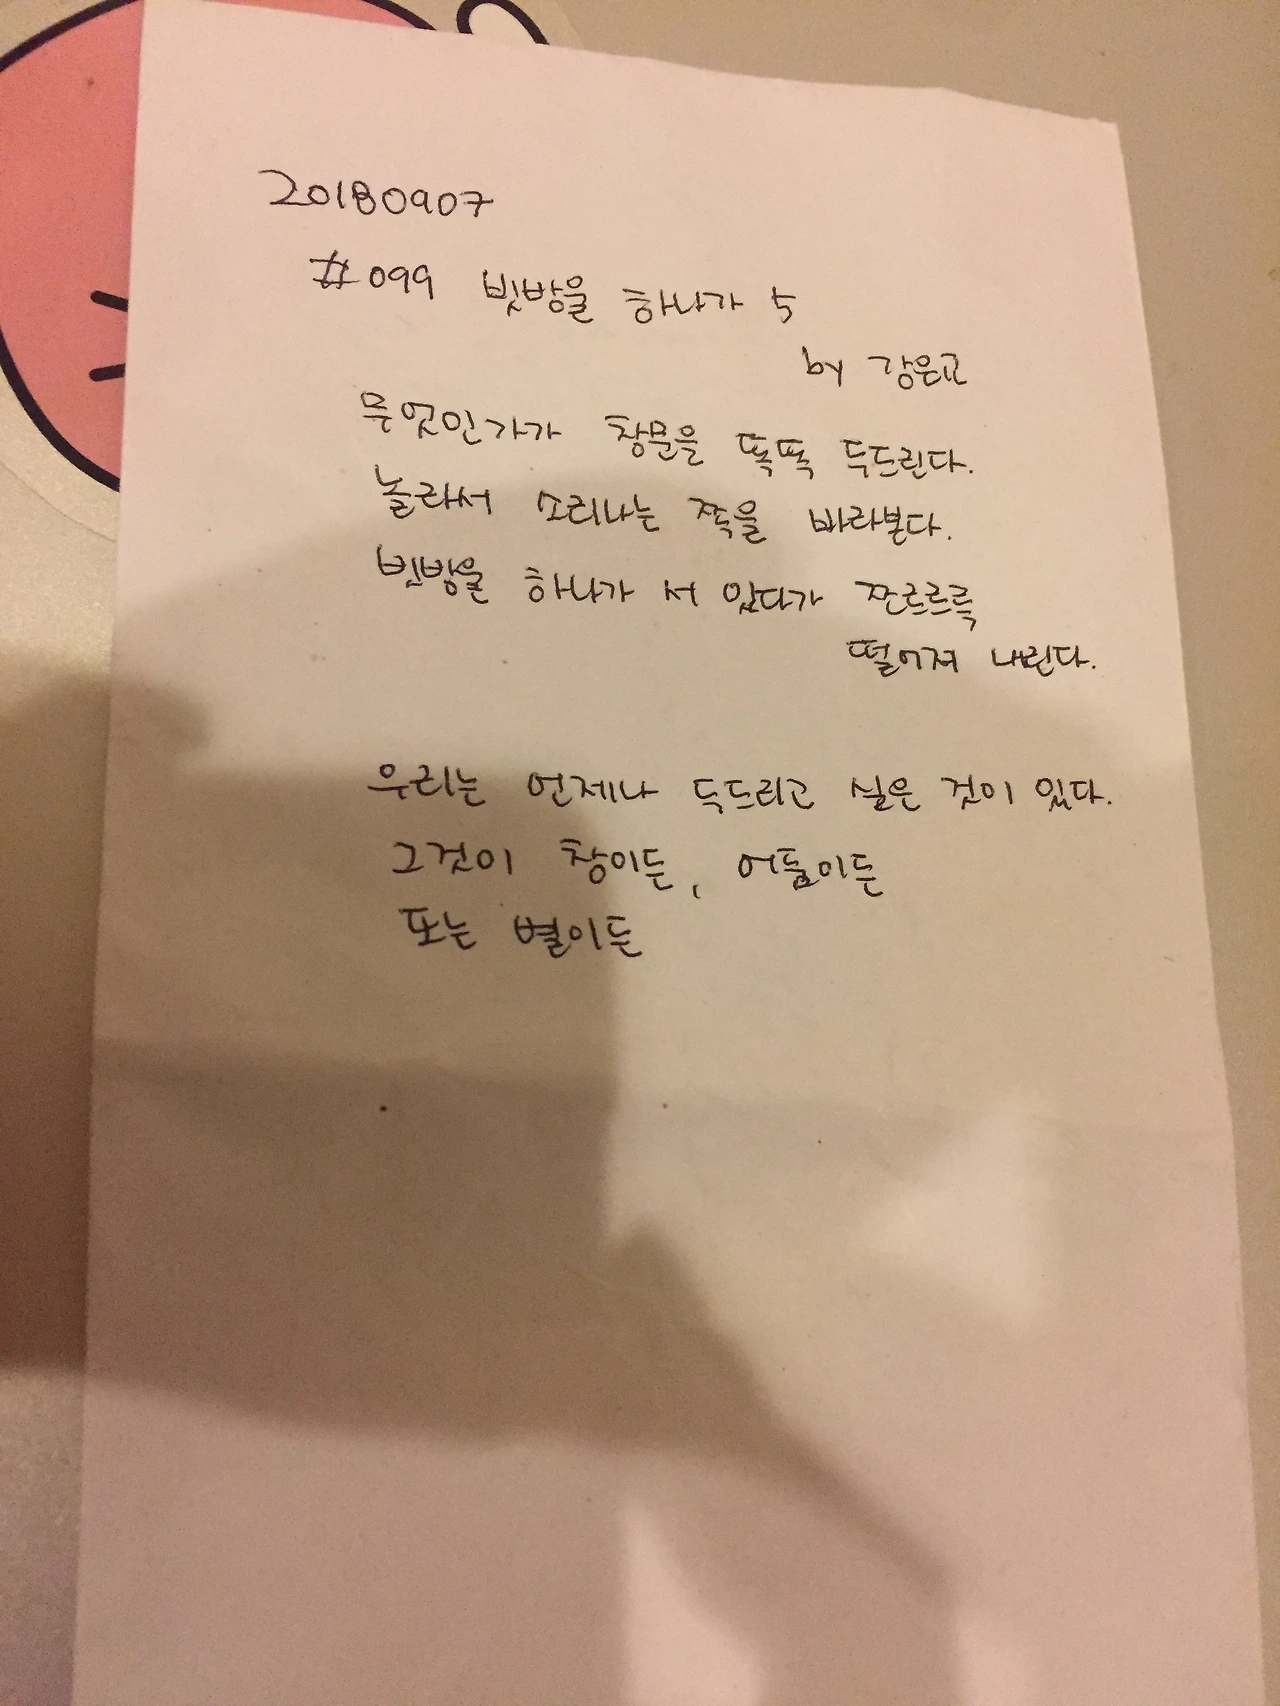 20180907
#099 빗방울 하나가 5
by 강은교
무엇인가가 창문을 똑똑 두드린다.
놀라서 소리나는 쪽을 바라본다.
빗방울 하나가 서 있다가 쪼르르륵
떨어져 내린다.
우리는 언제나 두드리고 싶은 것이 있다.
그것이 창이든, 어둠이든
또는 별이든